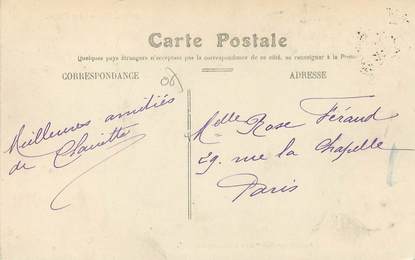 Carte Postale
Quelques pays étrangers n'acceptent pas la correspondance de ce côté, se renseigner à la Poste
CORRESPONDANCE
ADRESSE
06
Meilleures amitiés
de
Melle Rose Féraud
29. rue la Chapelle
Paris